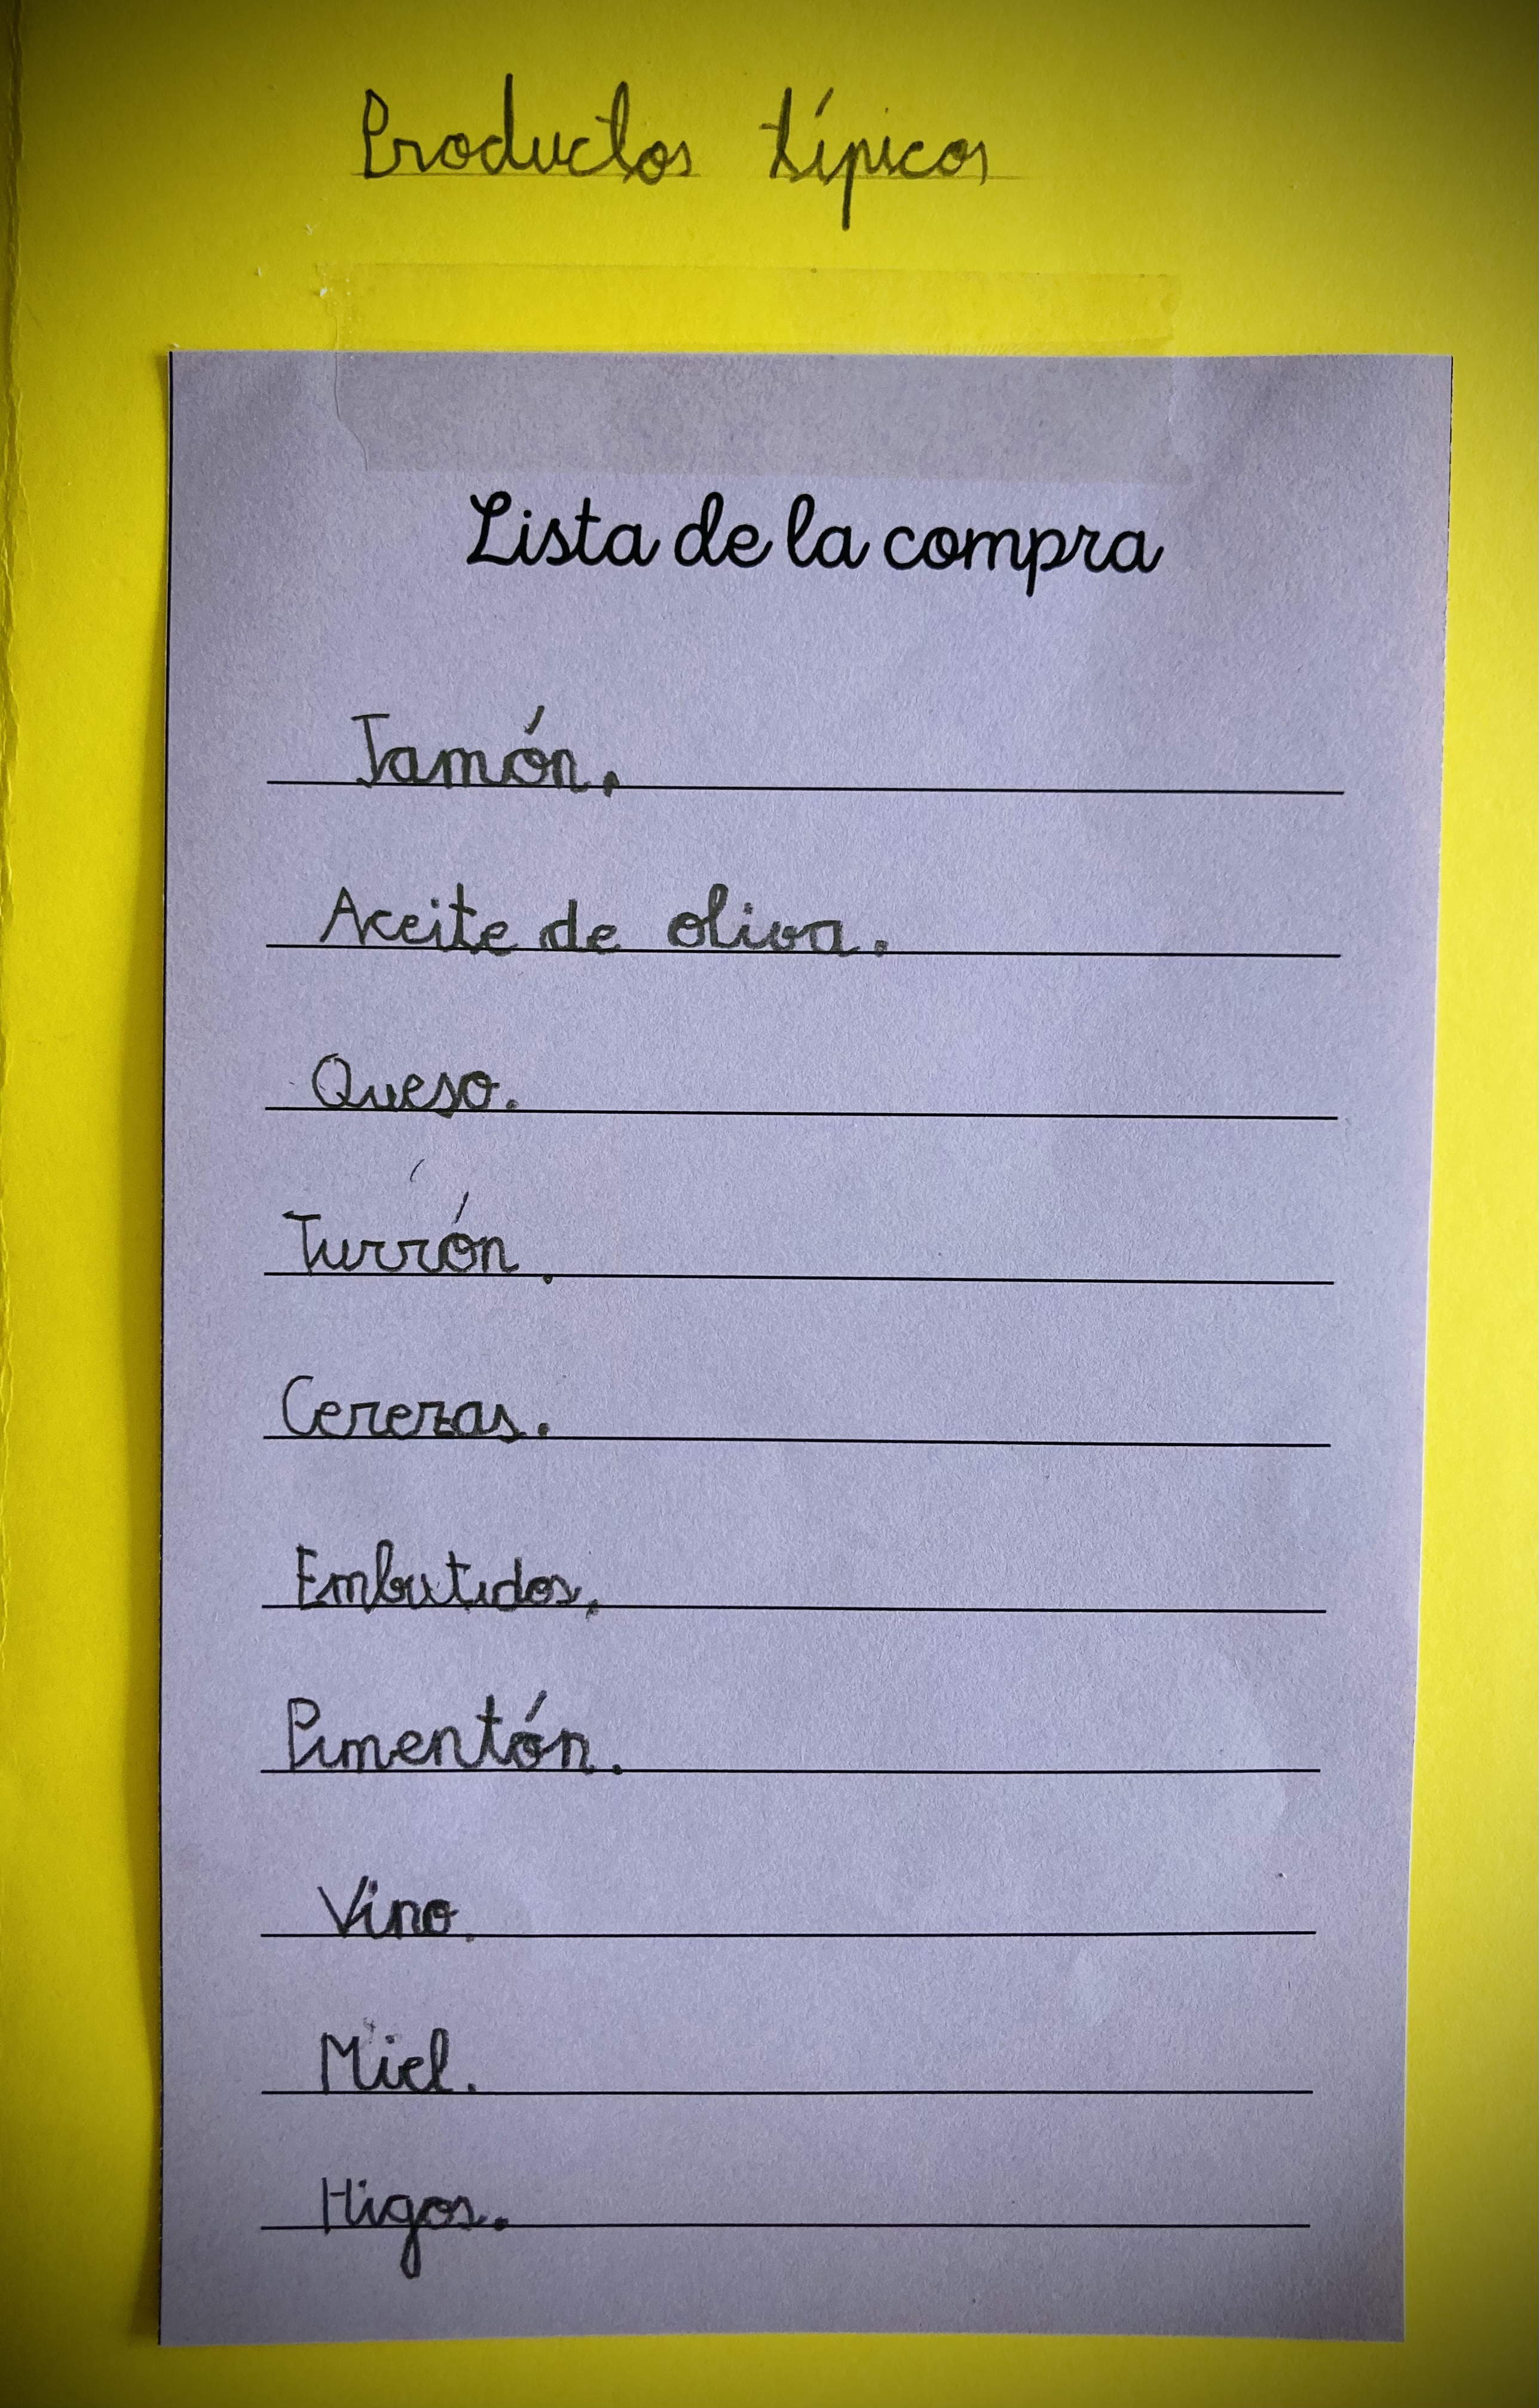 Productos típicos
Lista de la compra
Jamón.
Aceite de oliva.
Queso.
Turrón.
Cerezas.
Embutidos.
Pimentón.
Vino.
Miel.
Higos.